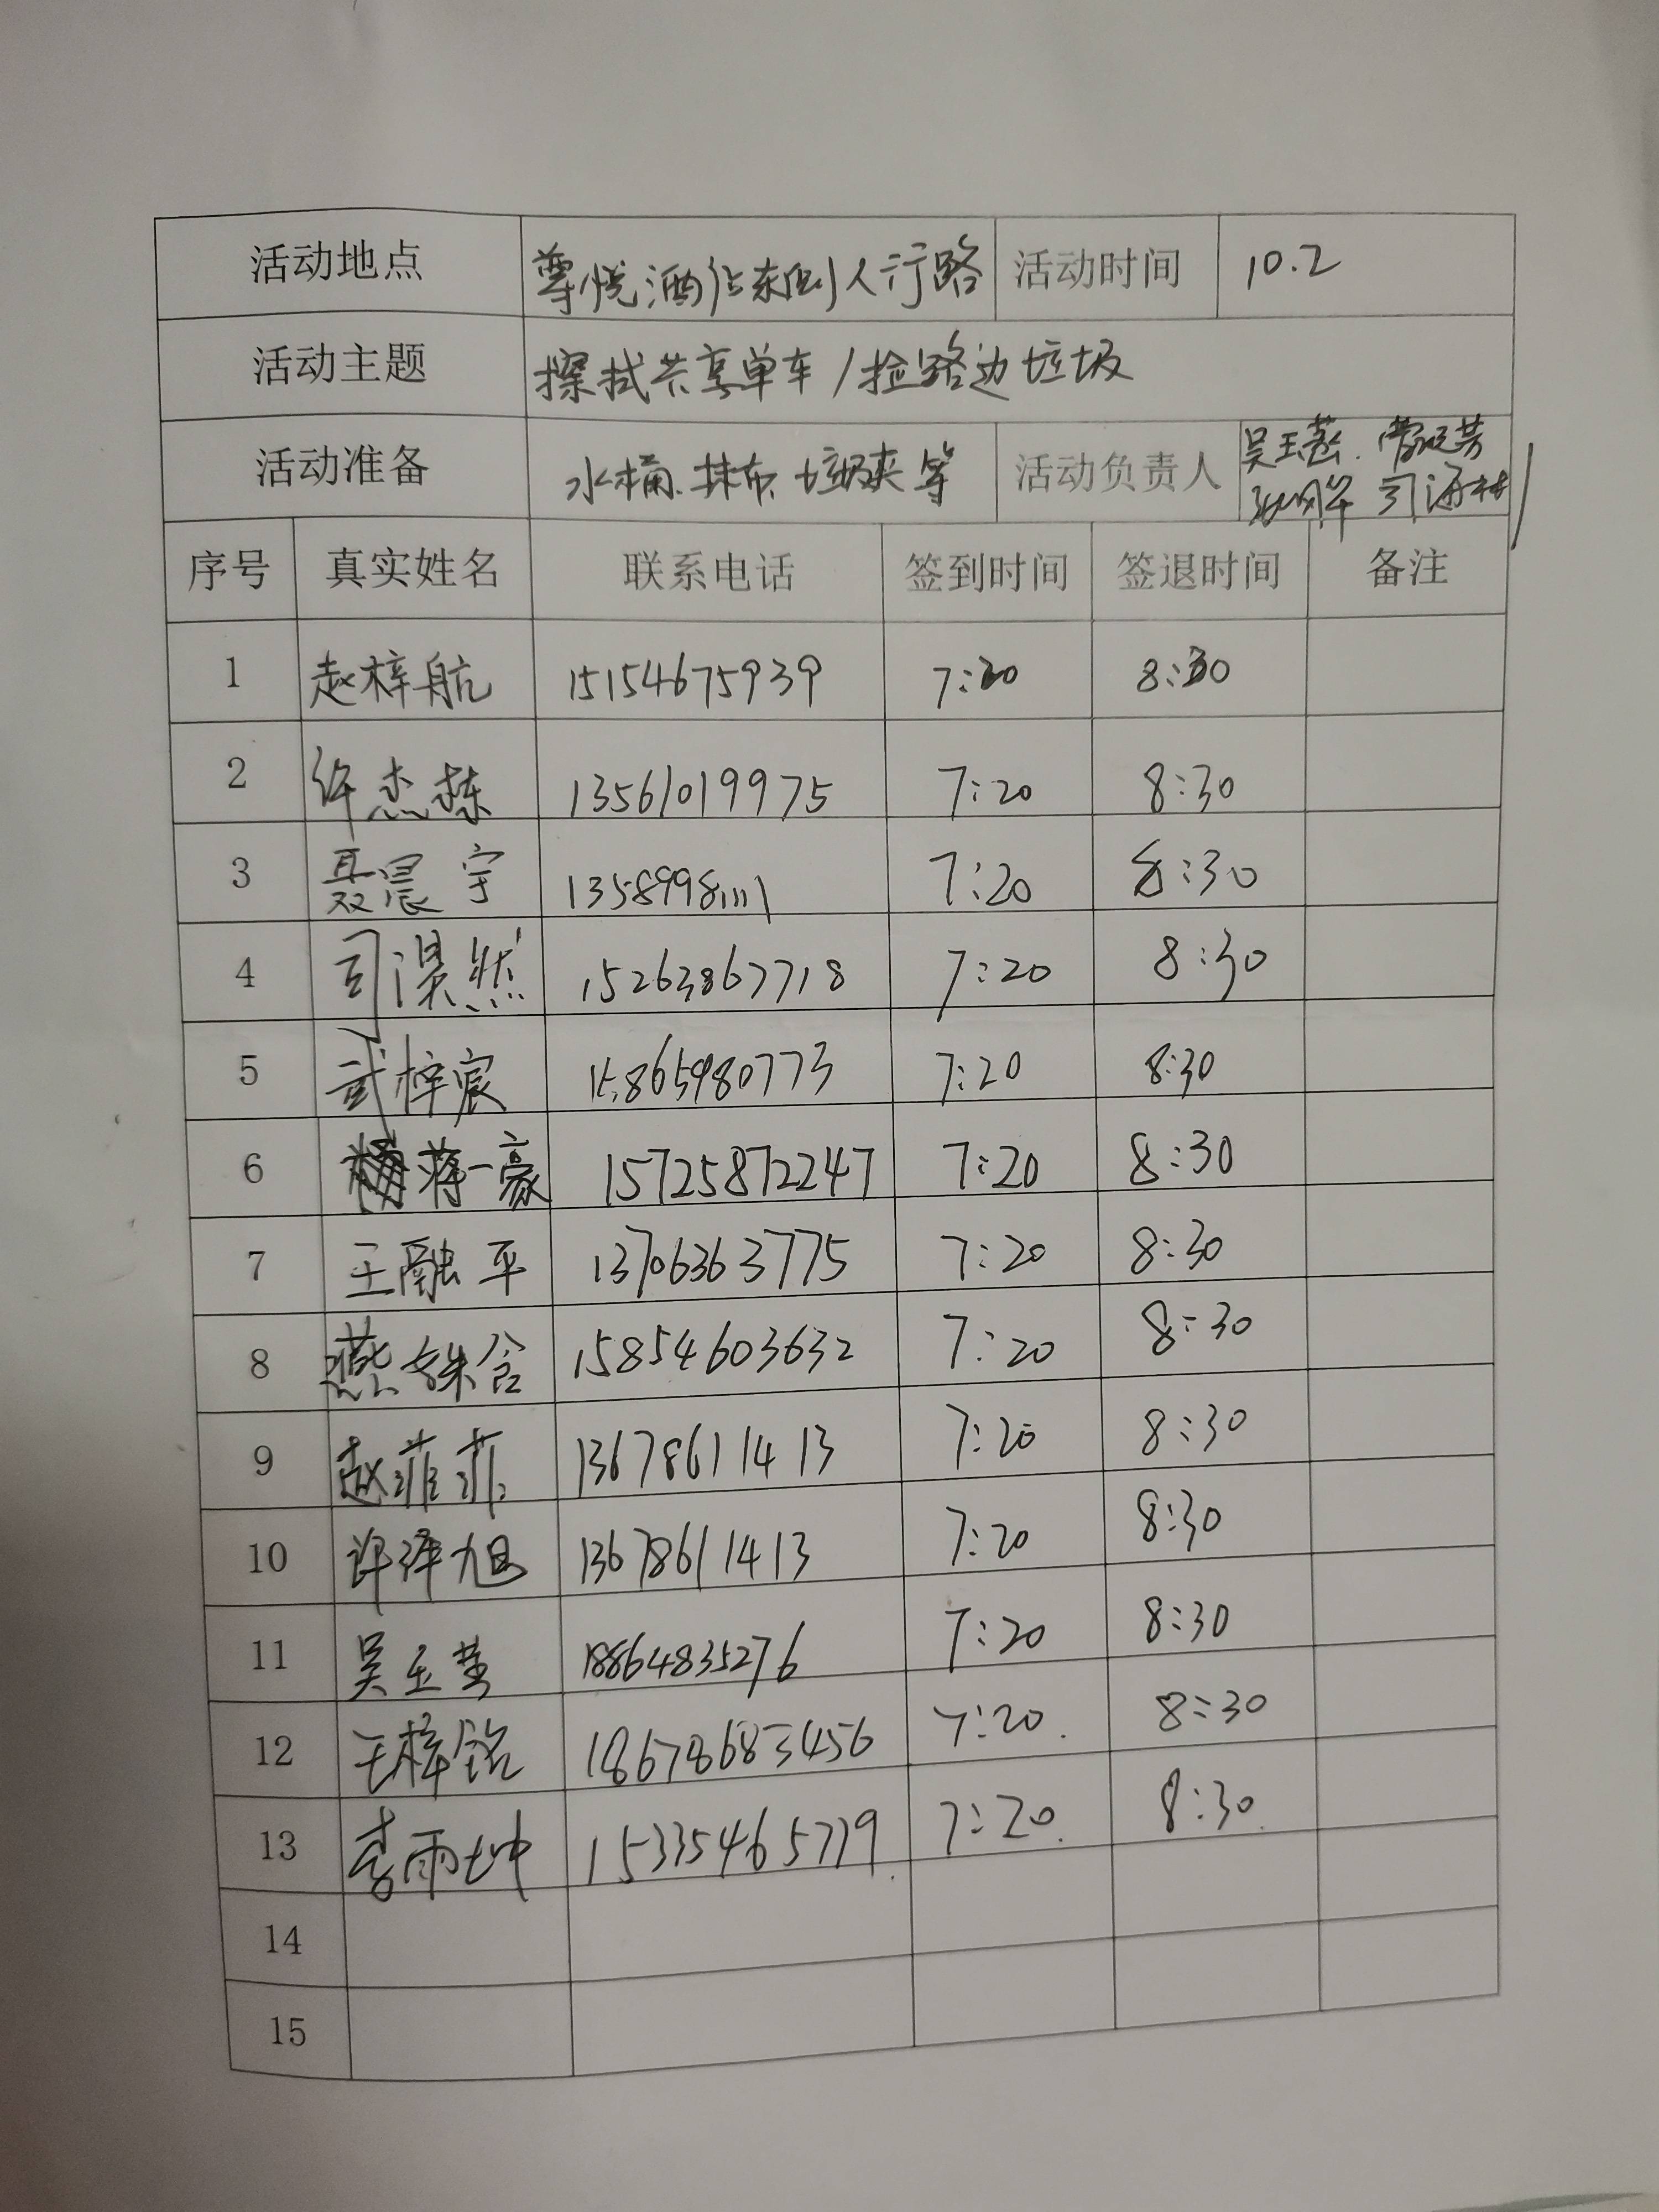 活动地点 尊悦酒店东侧人行路 活动时间 10.2
活动主题 擦拭共享单车/捡路边垃圾
活动准备 水桶、抹布、垃圾夹等 活动负责人 吴玉
司海林
序号 真实姓名 联系电话 签到时间 签退时间 备注
1 赵梓航 15154675939 7:20 8:30
2 许杰栋 13561019975 7:20 8:30
3 聂晨宇 13589981111 7:20 8:30
4 司淏然 15263867718 7:20 8:30
5 武梓宸 15865980773 7:20 8:30
6 蒋一豪 15725872247 7:20 8:30
7 王融平 13706363775 7:20 8:30
8 燕姝含 15854603632 7:20 8:30
9 赵菲菲 13678611413 7:20 8:30
10 许泽旭 13678611413 7:20 8:30
11 吴玉 18864835276 7:20 8:30
12 王梓铭 18678683456 7:20. 8:30
13 李雨坤 15335465779. 7:20. 8:30.
14
15